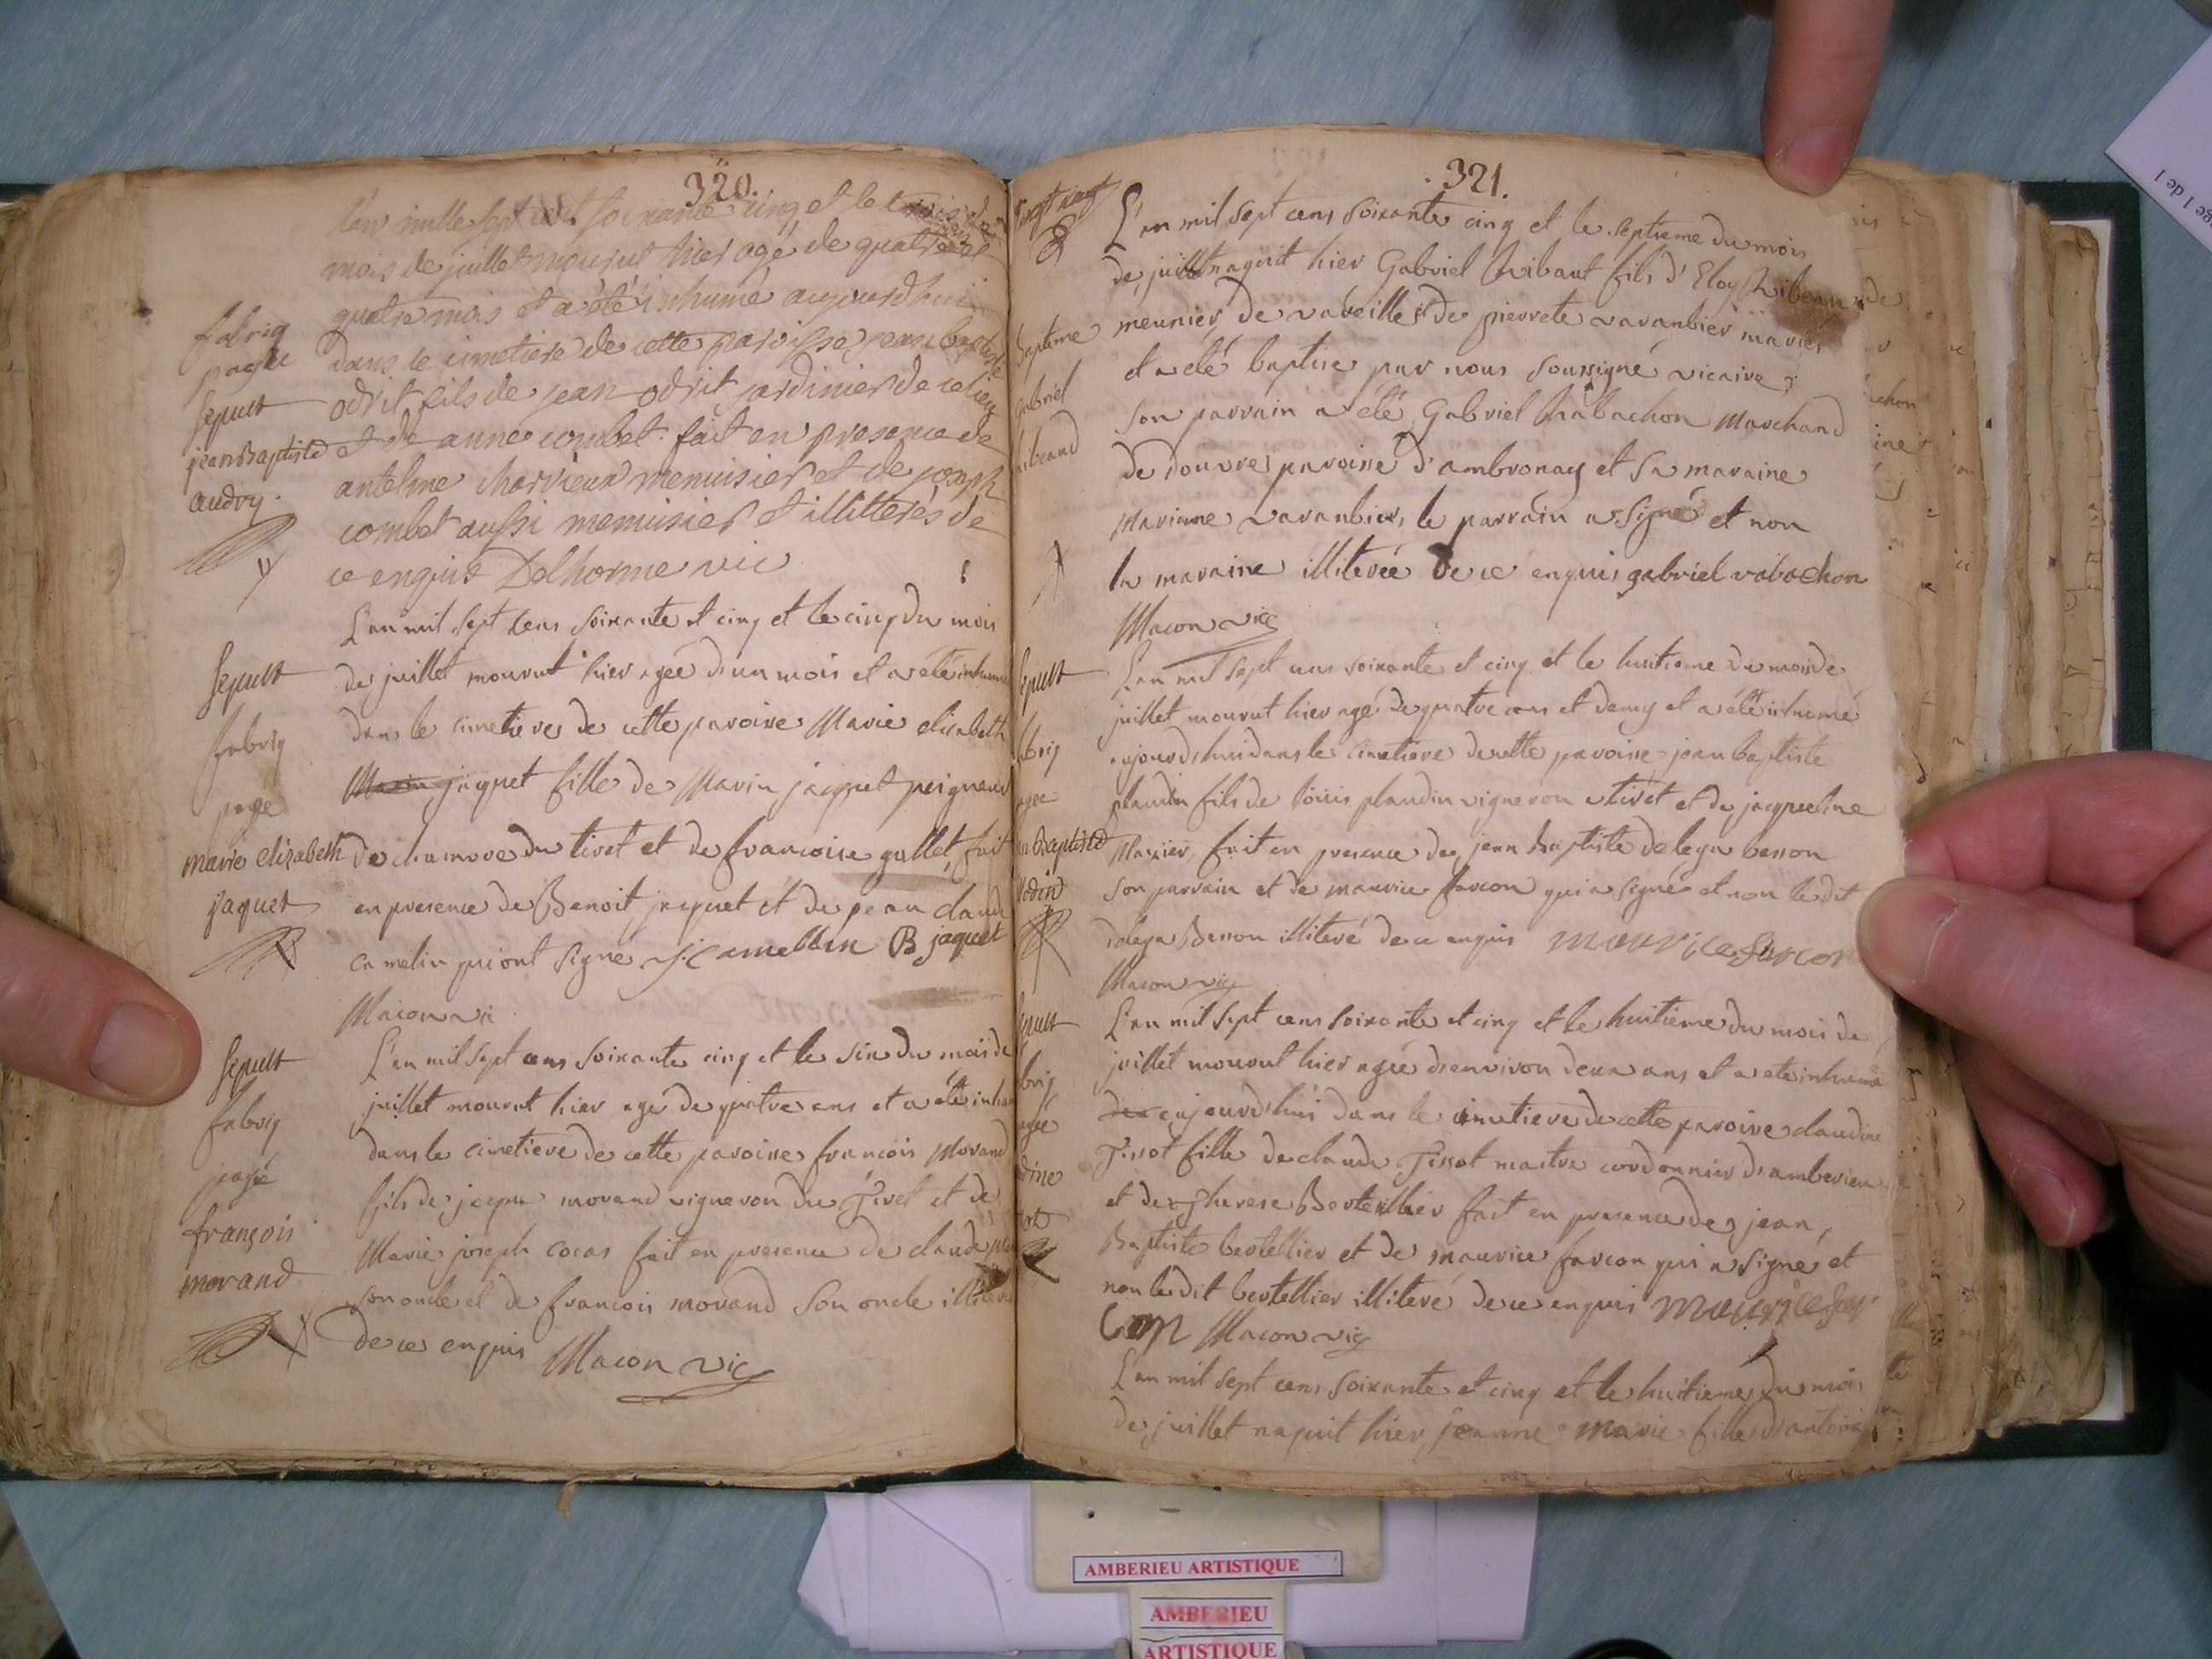 320.
l'an mille sept cent soixante cinq et le trois du
mois de juillet mourut hier agé de quatre
quatre mois et a été inhumé aujourdhui
dans le cimetiere de cette paroisse jean baptiste
odrit fils de jean odrit jardinier de ce lieu
et de anne combet. fait en presence de
antelme charvieux menuisier et de joseph
combet aussi menuisier et illitterés de
ce enquis Delhorme vic
fabriq
payée
sepult
jean Baptiste
audry
L'an mil sept cens soixante et cinq et le cinq du mois
de juillet mourut hier agée d'un mois et a été inhumé
dans le cimetiere de cette paroisse Marie elisabeth
Marin jaquet fille de Marin jacquet peigneur
de chamvre du tiret et de francoise gallet, fait
en presence de Benoit jacquet et de jean claude
camelin qui ont signé j: camellin B jaquet
Macon vi
sepult
fabriq
page
marie elizabeth
jaquet
L'an mil sept cens soixante cinq et le six du mois de
juillet mourut hier agé de quatre ans et a été inhu
dans le cimetiere de cette paroisse francois Morand
fils de jacque morand vigneron du Tiret et de
Marie joseph cocas fait en presence de claude
son oncle et de francois morand son oncle illiteres
de ce enquis Macon vic
sepult
fabriq
payé
françois
morand
321.
L'an mil sept cens soixante cinq et le septieme du mois
de juillet naquit hier Gabriel Thibaut fils d'Eloy Thibeau
meunier de vareille et de pierrete varanbier mariés
et a eté baptise par nous soussigné vicaire
son parrain a eté Gabriel Rabachon Marchand
de douvre paroisse d'ambronay et sa maraine
marianne varanbier, le parrain a signé et non
la maraine illiterée de ce enquis gabriel rabachon
Macon vic
bapteme
gabriel
L'an mil sept cens soixante et cinq et le huitieme du mois de
juillet mourut hier agé de quatre ans et demy et a été inhumé
aujourdhui dans le cimetiere de cette paroisse jean baptiste
plandin fils de louis plandin vigneron a tiret et de jacqueline
fait en presence de jean baptiste delega benon
son parrain et de maurice farcon qui a signé et non le dit
delega Benon illiteré de ce enquis maurice farcon
Macon vic
sepult
L'an mil sept cens soixante et cinq et le huitieme du mois de
juillet mourut hier agée d'environ deux ans et a ete inhumé
aujourdhui dans le cimetiere de cette paroisse claudine
Tissot fille de claude Tissot maitre cordonnier d'amberieu
et de Therese Bertellier fait en presence de jean
Baptiste bertellier et de maurice farcon qui a signé et
non le dit bertellier illiteré de ce enquis maurice far
con Macon vic
sepult
L'an mil sept cens soixante et cinq et le huitieme du mois
de juillet naquit hier jeanne marie fille d'antoine
AMBERIEU ARTISTIQUE
AMBERIEU
ARTISTIQUE